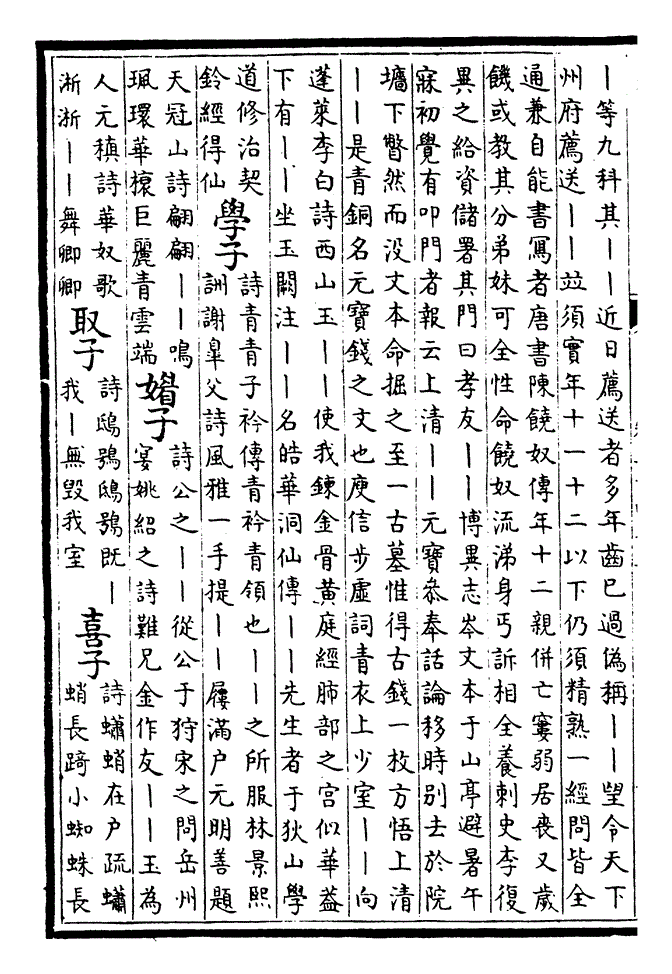 ｜等九科其｜｜近日薦送者多年齒已過偽稱｜｜望令天下
州府薦送｜｜並須實年十一十二以下仍須精熟一經問皆全
通兼自能書寫者唐書陳饒奴傳年十二親併亡窶弱居喪又歲
饑或教其分弟妹可全性命饒奴流涕身丐訴相全養刺史李復
異之給資儲署其門曰孝友｜｜博異志岑文本于山亭避暑午
寐初覺有叩門者報云上清｜｜元寶叅奉話論移時別去於院
墻下瞥然而没文本命掘之至一古墓惟得古錢一枚方悟上清
｜｜是青銅名元寶錢之文也庾信步虛詞青衣上少室｜｜向
蓬萊李白詩西山玉｜｜使我鍊金骨黄庭經肺部之宫似華葢
下有｜｜坐玉闕注｜｜名皓華洞仙傳｜｜先生者于狄山學
道修治契
鈴經得仙
學子
詩青青子衿傳青衿青領也｜｜之所服林景熙
詶謝臯父詩風雅一手提｜｜屨滿户元明善題
天冠山詩翩翩｜｜鳴
珮環華榱巨麗青雲端
媚子
詩公之｜｜從公于狩宋之問岳州
宴姚紹之詩難兄金作友｜｜玉為
人元稹詩華奴歌
淅淅｜｜舞卿卿
取子
詩鴟鴞鴟鴞既｜
我｜無毀我室
喜子
詩蠨蛸在户疏蠨
蛸長踦小蜘蛛長